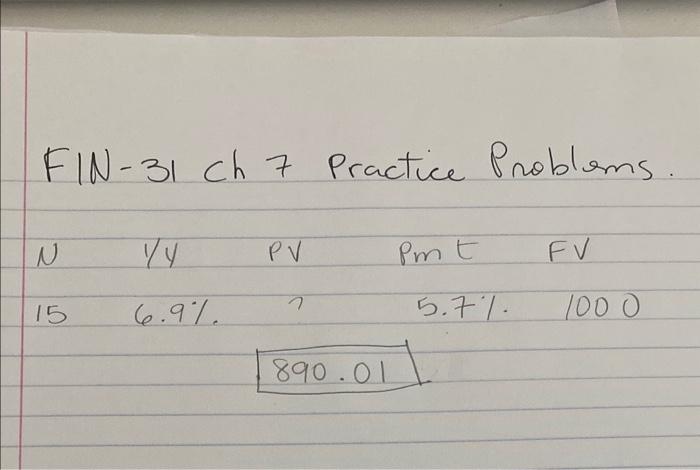 FIN-31 Ch 7 Practice Problems.
N I/Y PV Pmt FV
15 6.9% ? 5.7% 1000
890.01